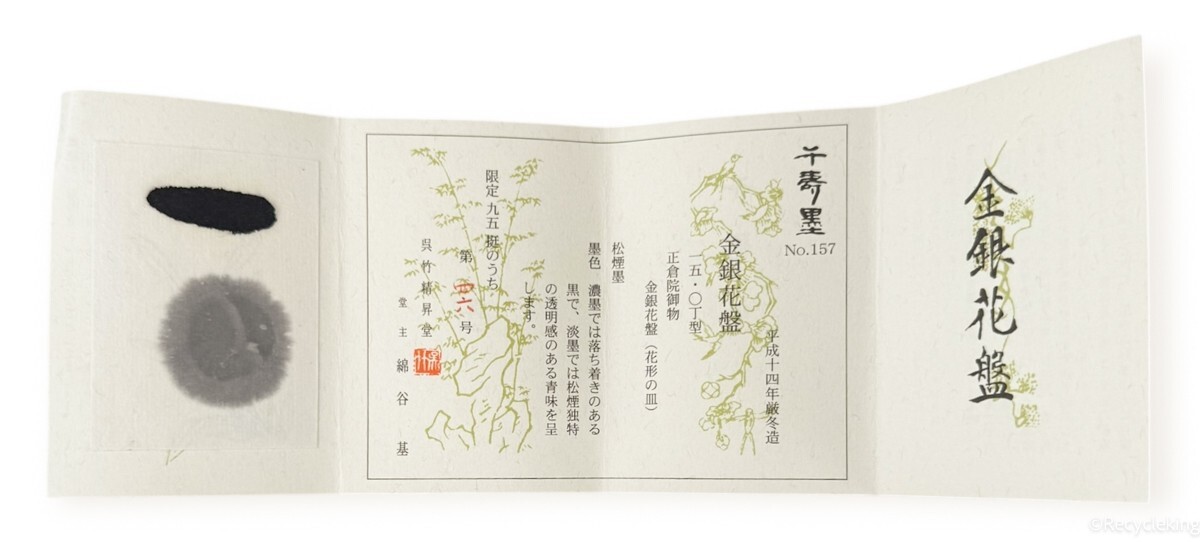 金銀花盤
千寿墨
No.157
平成十四年厳冬造
金銀花盤
一五・〇丁型
正倉院御物
金銀花盤（花形の皿）
松煙墨
墨色　濃墨では落ち着きのある
黒で、淡墨では松煙独特
の透明感のある青味を呈
します。
限定九五挺のうち
第四六号
呉竹精昇堂
堂主　綿谷　基
©Recycleking